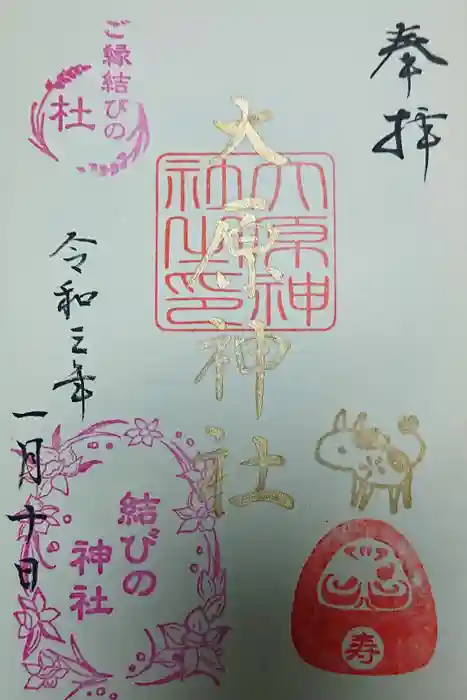 奉拝
大原神社
大原神
社之印
寿
ご縁結びの
杜
令和三年
一月十日
結びの
神社